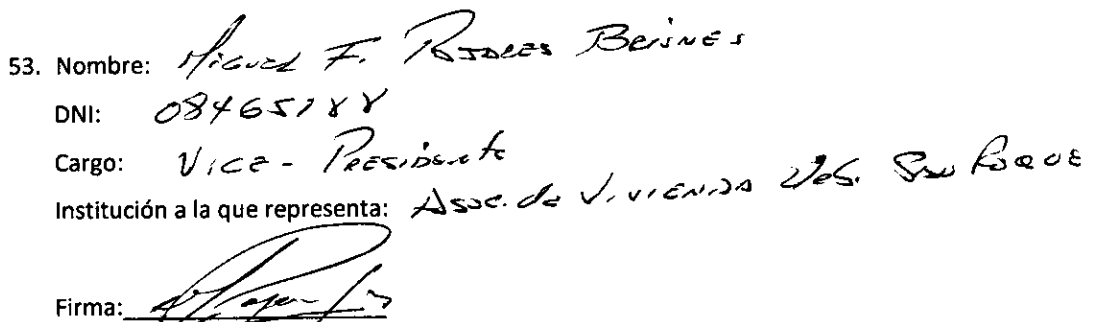 53. Nombre: Miguel F.
DNI: 08465188
Cargo: Vice - Presidente
Institución a la que representa: Asoc. de Vivienda San Roque
Firma: